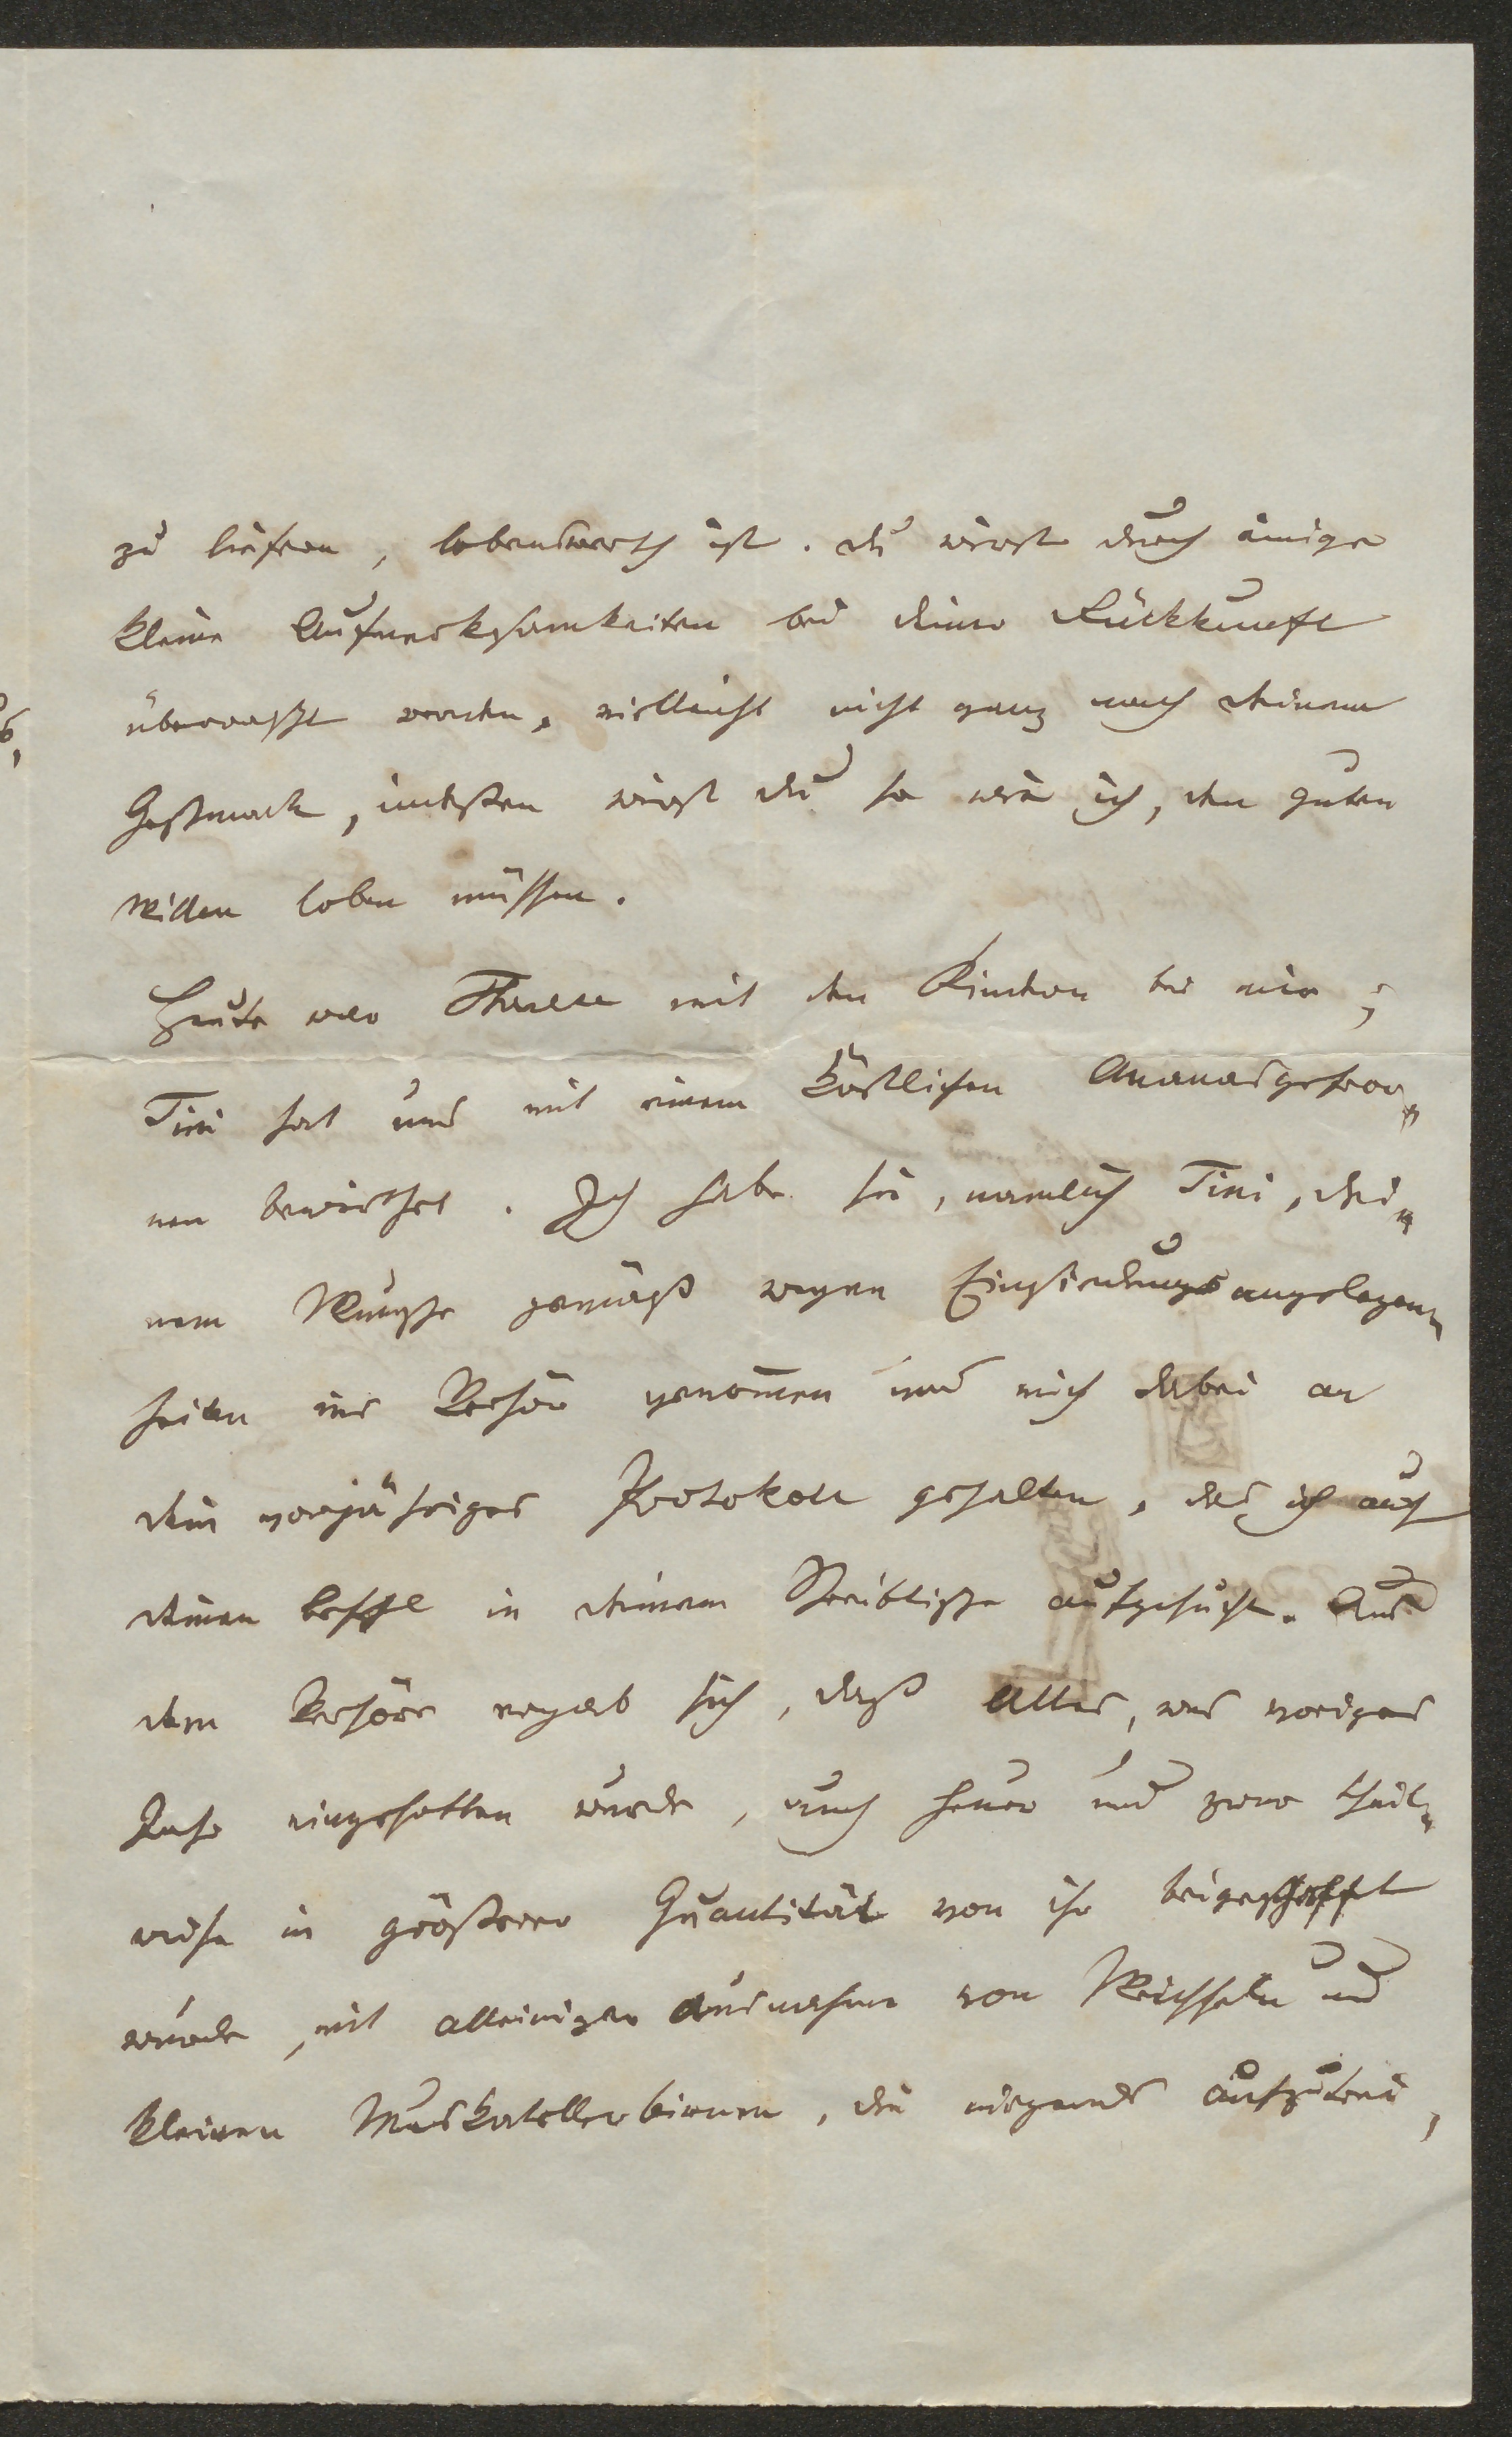 zu liefern, lobenswerth ist. Du wirst durch einige
kleine Aufmerksamkeiten bei deiner Rückkunft
überrascht werden, vielleicht nicht ganz nach deinem
Geschmack, indessen wirst du so wie ich, den guten
Willen loben müssen.
Heute war Therese mit den Kindern bei mir;
Tini hat uns mit einem köstlichen Ananasgefror„
nen bewirthet. Ich habe sie, namlich Tini, dei„
nem Wunsche gemäß wegen Einsiedungsangelegen„
heiten ins Verhör genom̄en und mich dabei an
dein vorjähriges Protokoll gehalten, das ich auf
deinen Befehl in deinem Schreibtische aufgesucht. Aus
dem Verhöre ergab sich, daß Alles, was voriges
Jahr eingesotten wurde, auch heuer und zwar theil„
weise in größerer Quantität von ihr beigeschafft
wurde, mit alleiniger Ausnahme von Weichseln und
kleinen Muskatellerbirnen, die nirgends aufzutrei„